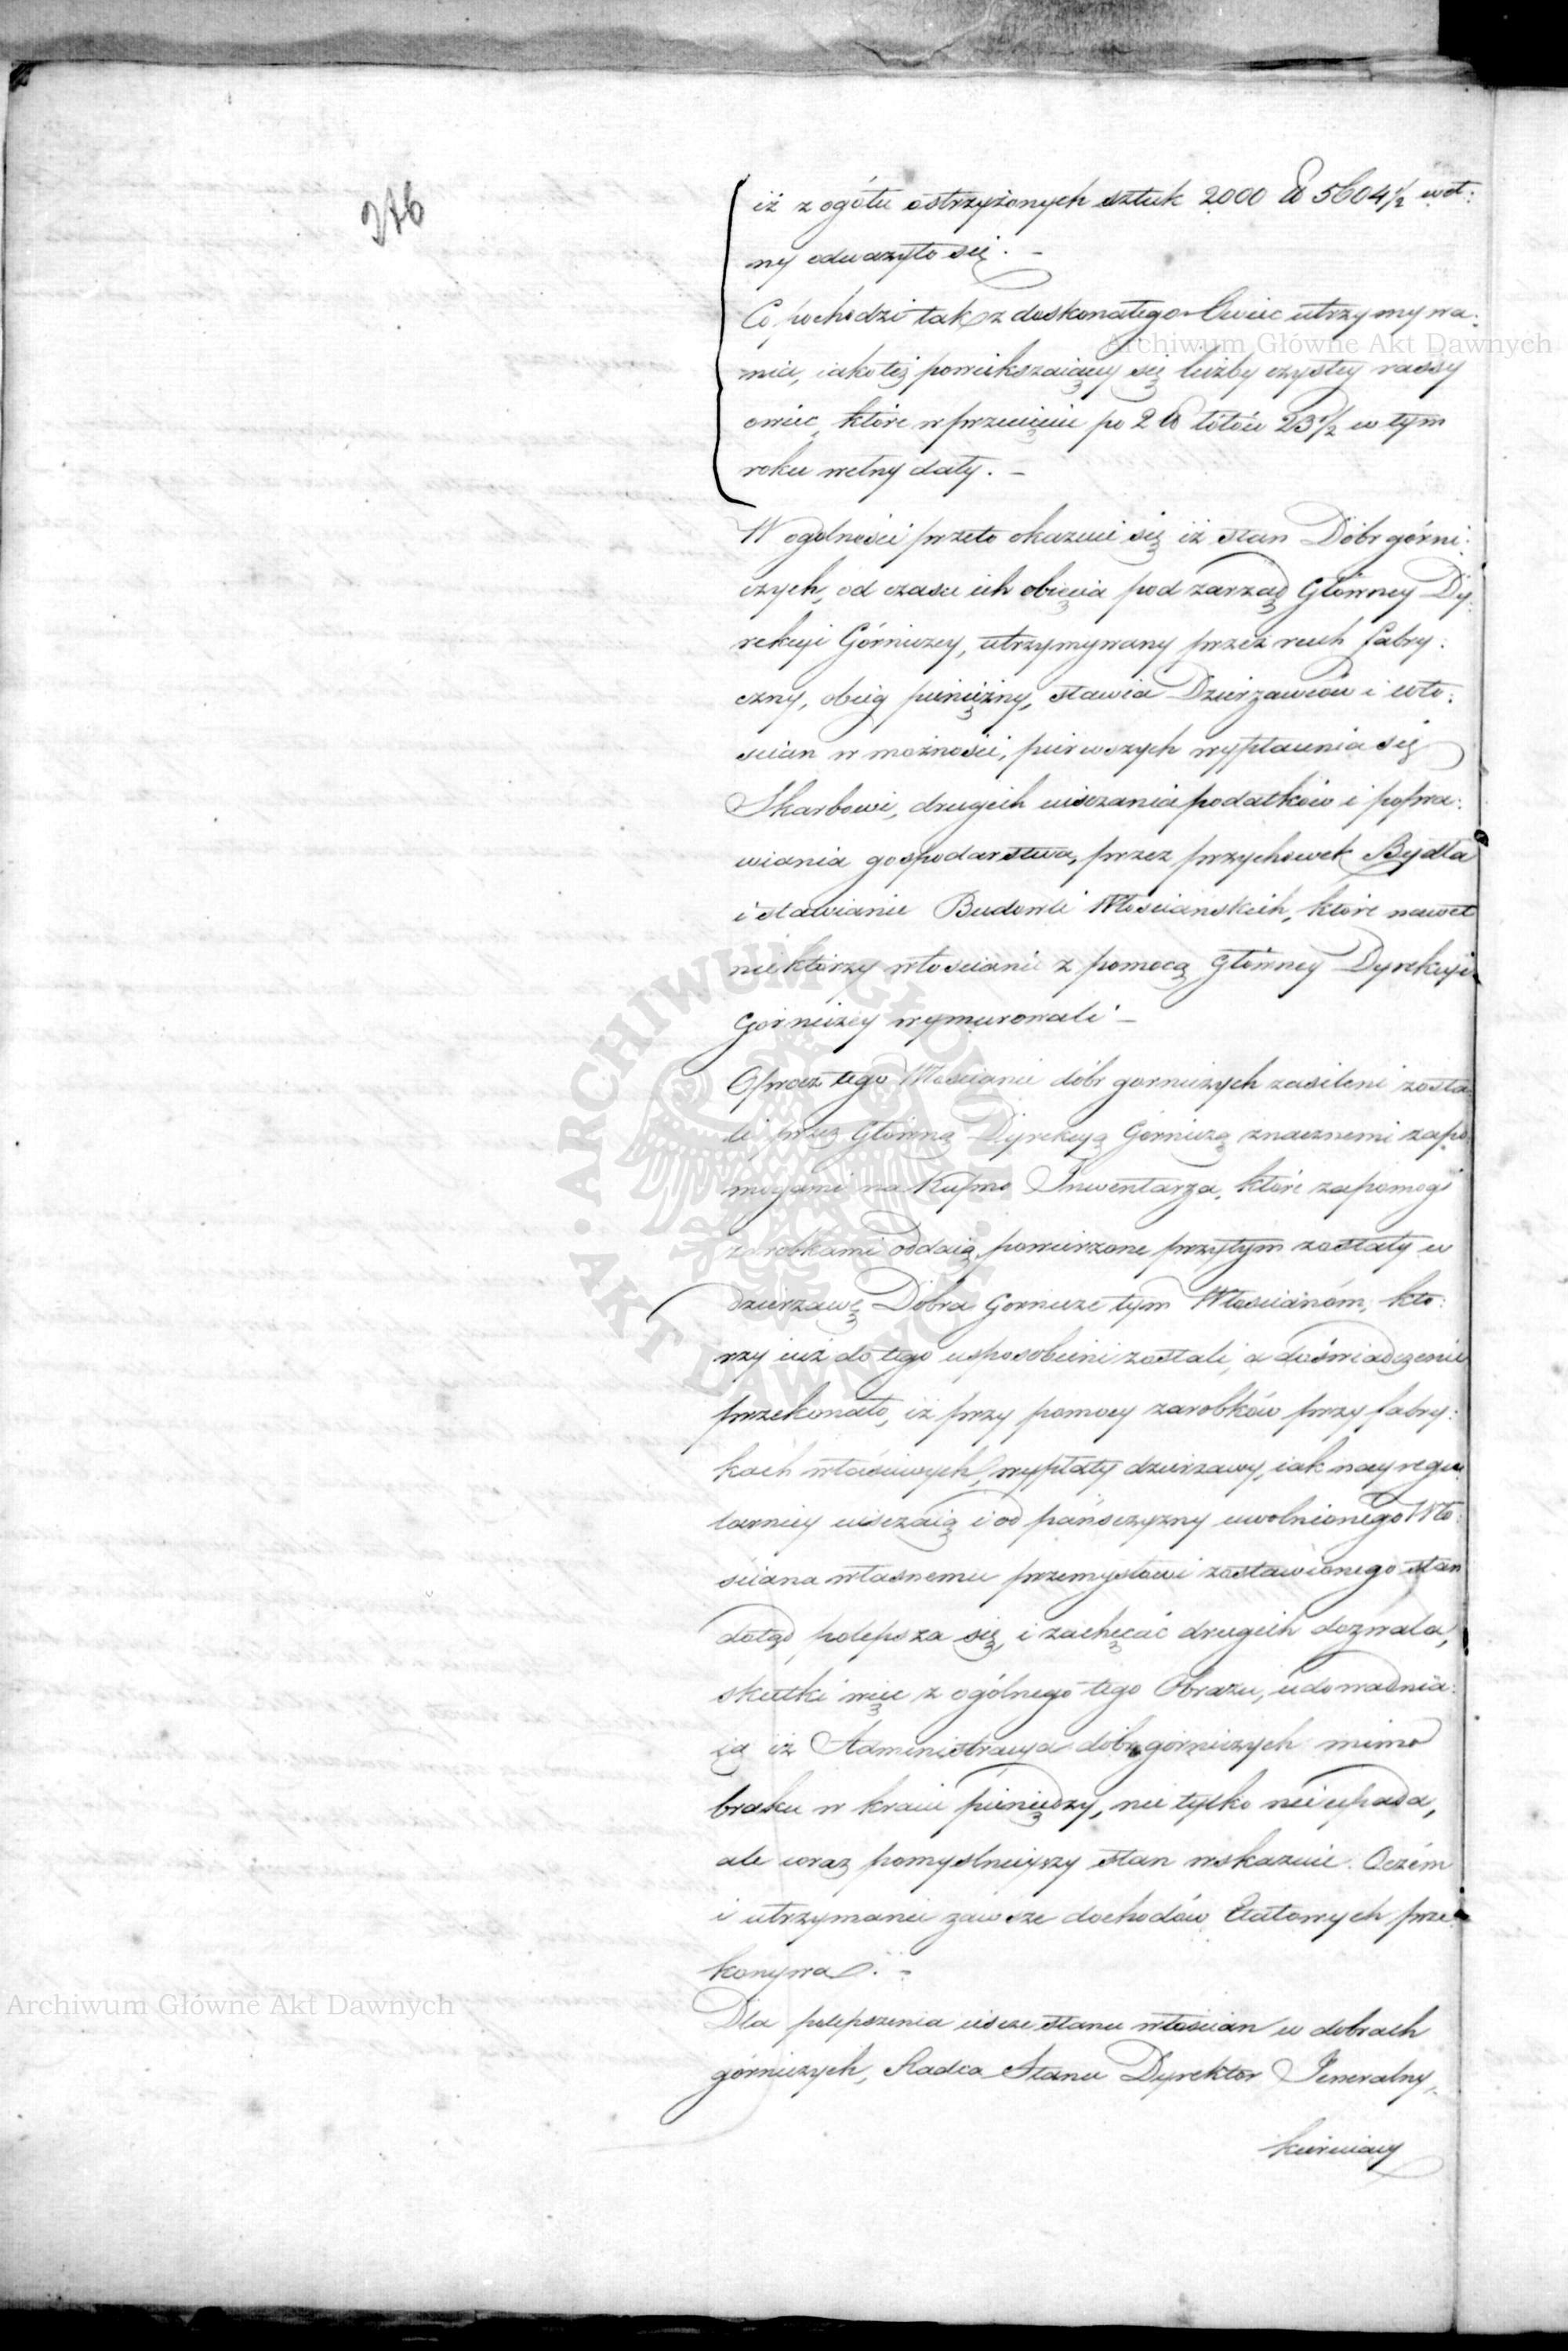 276
iż z ogółu ostrzyżonych sztuk 2000 ℔ 5604½ weł:
ny odważyło się. –
Co pochodzi tak z doskonałego Owiec utrzymywa:
nia, iako też powiększaiącey się liczby czystey rassy
owiec, które w przecięciu po 2 ℔ łótów 23½ w tym
roku wełny dały. –
W ogolności przeto okazuie się iż stan Dóbr górni:
czych, od czasu ich obięcia pod zarząd Główney Dy:
rekcyi Górniczey, utrzymywany przez ruch fabry:
czny, obieg pieniężny, stawia Dzierżawców i wło:
scian w możności, pierwszych wypłacenia się
Skarbowi, drugich uiszczania podatków i popra:
wiania gospodarstwa, przez przychowek Bydła
i stawianie Budowli Włosciańskich, które nawet
niektórzy włoscianie z pomocą Główney Dyrekcyi
Gorniczey wymurowali –
Oprocz tego Włoscianie dóbr gorniczych zasileni zosta
li przez Główną Dyrekcyą Gorniczą znacznemi zapo
mogami na Kupno Inwentarza, które zapomogi
zarobkami oddaią, powierzone przytym zostały w
dzierzawę Dobra Gornicze tym Włoscianóm, kto:
rzy iuż do tego usposobieni zostali, a doświadczenie
przekonało, iż przy pomocy zarobków przy fabry:
kach właściwych, wypłaty dzierzawy, iak nayregu
larniey uiszczaią i od pańszczyzny uwolnionego Wło:
ściana własnemu przemysłowi zostawionego stan
dotąd polepsza się, i zachęcać drugich dozwala,
skutki więc z ogólnego tego Obrazu, udowadnia:
ią iż Administracya dóbr górniczych mimo
braku w kraiu pieniędzy, nie tylko nie upada,
ale coraz pomyslnieyszy stan wskazuie. O czém
i utrzymanie zawsze dochodów Etatowych prze
konywa. –
Dla polepszenia ieszcze stanu włościan w dobrach
górniczych, Radca Stanu Dyrektor Jeneralny,
kieruiący
Archiwum Główne Akt Dawnych
Archiwum Główne Akt Dawnych
ARCHIWUM GŁÓWNE AKT DAWNYCH